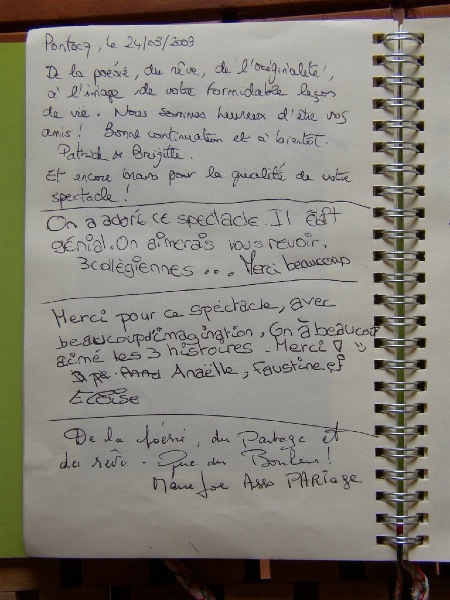 Pontacq, le 24/03/2009
De la poésie, du rêve, de l'originalité,
à l'image de votre formidable leçon
de vie. Nous sommes heureux d'être vos
amis! Bonne continuation et à bientôt.
Patrick & Brigitte.
Et encore bravo pour la qualité de votre
spectacle!
On a adoré ce spectacle. Il était
génial. On aimerais vous revoir.
3 collègiennes ... Merci beaucoup
Merci pour ce spéctacle, avec
beaucoup d'imagination, On à beaucoup
aimé les 3 histoires. Merci!
Anaëlle, Faustine et
Eloïse
De la Poésie, du Partage et
du rêve - Que du Bonheur!
Marie Joe Asso PARTAGE